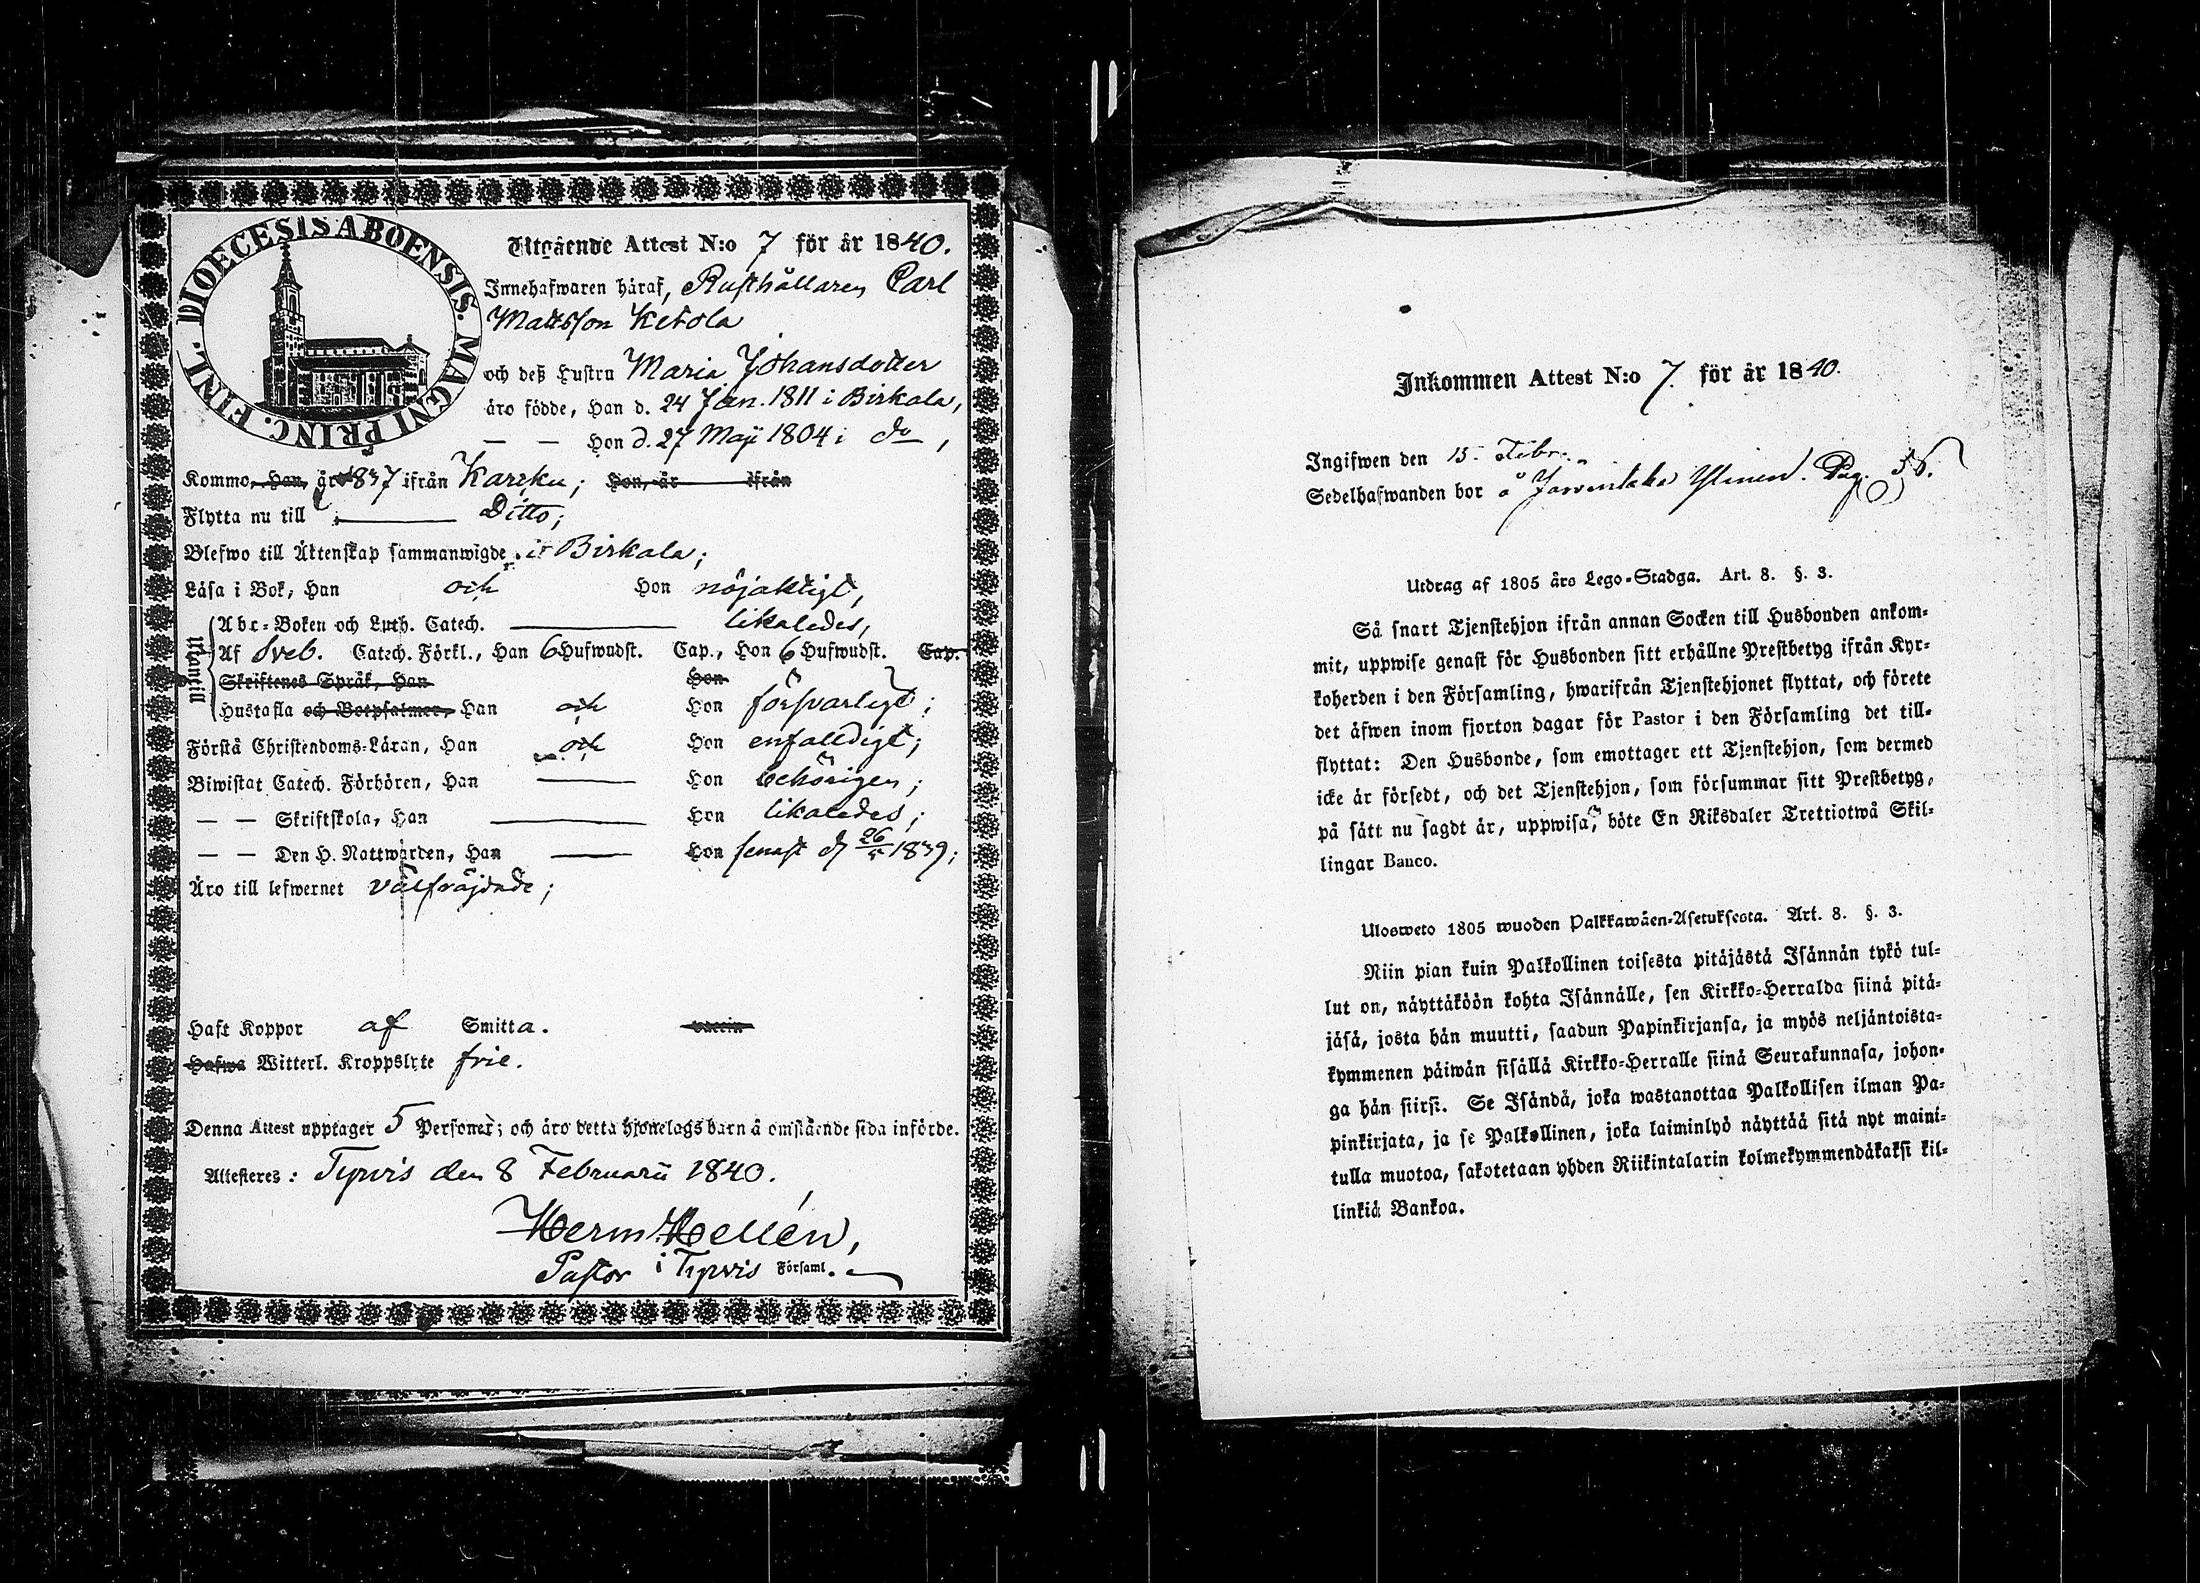 DIOECESIS ABOENSIS. MAGNI PRINC. FINL.
Utgående Attest N:o 7 för år 1840.
Innehafwaren häraf, Rusthållaren Carl
Mattsson Ketola
och deß Hustru Maria Johansdotter
äro födde, Han d. 24 Jan. 1811 i Birkala,
— — Hon d. 27 Maji 1804 i do,
Kommo, Han, år 1837 ifrån Karkku; Hon, år ifrån
Flytta nu till Ditto;
Blefwo till Äktenskap sammanwigde i Birkala;
Läsa i Bok, Han och Hon nöjaktigt,
Utantill
Abc-Boken och Luth. Catech. likaledes,
Af Sveb. Catech. Förkl., Han 6 Hufwudst. Cap., Hon 6 Hufwudst. Cap.
Skriftenes Språk, Han Hon
Hustafla och Botpsalmer, Han och Hon försvarligt;
Förstå Christendoms-Läran, Han och Hon enfaldigt;
Biwistat Catech. Förhören, Han Hon behörigen;
— — Skriftskola, Han Hon likaledes;
— — Den H. Nattwarden, Han Hon senast d. 26/5 1839;
Äro till lefwernet välfräjdade;
Haft Koppor af Smitta. vaccin
Hafwa Witterl. Kroppslyte frie.
Denna Attest upptager 5 Personer; och äro detta hjonelags barn å omstående sida införde.
Attesteres: Tyrvis den 8 Februarii 1840.
Herm Hellén,
Pastor i Tyrvis Församl.
Inkommen Attest N:o 7. för år 1840.
Ingifwen den 15. Febr.
Sedelhafwanden bor å Ylinen. Pag. 56.
Utdrag af 1805 års Lego-Stadga. Art. 8. §. 3.
Så snart Tjenstehjon ifrån annan Socken till Husbonden ankom-
mit, uppwise genast för Husbonden sitt erhållne Prestbetyg ifrån Kyr-
koherden i den Församling, hwarifrån Tjenstehjonet flyttat, och förete
det äfwen inom fjorton dagar för Pastor i den Församling det till-
flyttat: Den Husbonde, som emottager ett Tjenstehjon, som dermed
icke är försedt, och det Tjenstehjon, som försummar sitt Prestbetyg,
på sätt nu sagdt är, uppwisa, böte En Riksdaler Trettiotwå Skil-
lingar Banco.
Ulosweto 1805 wuoden Palkkawäen-Asetuksesta. Art. 8. §. 3.
Niin pian kuin Palkollinen toisesta pitäjästä Isännän tykö tul-
lut on, näyttäköön kohta Isännälle, sen Kirkko-Herralda siinä pitä-
jäsä, josta hän muutti, saadun Papinkirjansa, ja myös neljäntoista-
kymmenen päiwän sisällä Kirkko-Herralle siinä Seurakunnasa, johon-
ga hän siirsi. Se Isändä, joka wastanottaa Palkollisen ilman Pa-
pinkirjata, ja se Palkollinen, joka laiminlyö näyttää sitä nyt maini-
tulla muotoa, sakotetaan yhden Riikintalarin kolmekymmendäkaksi kil-
linkiä Bankoa.